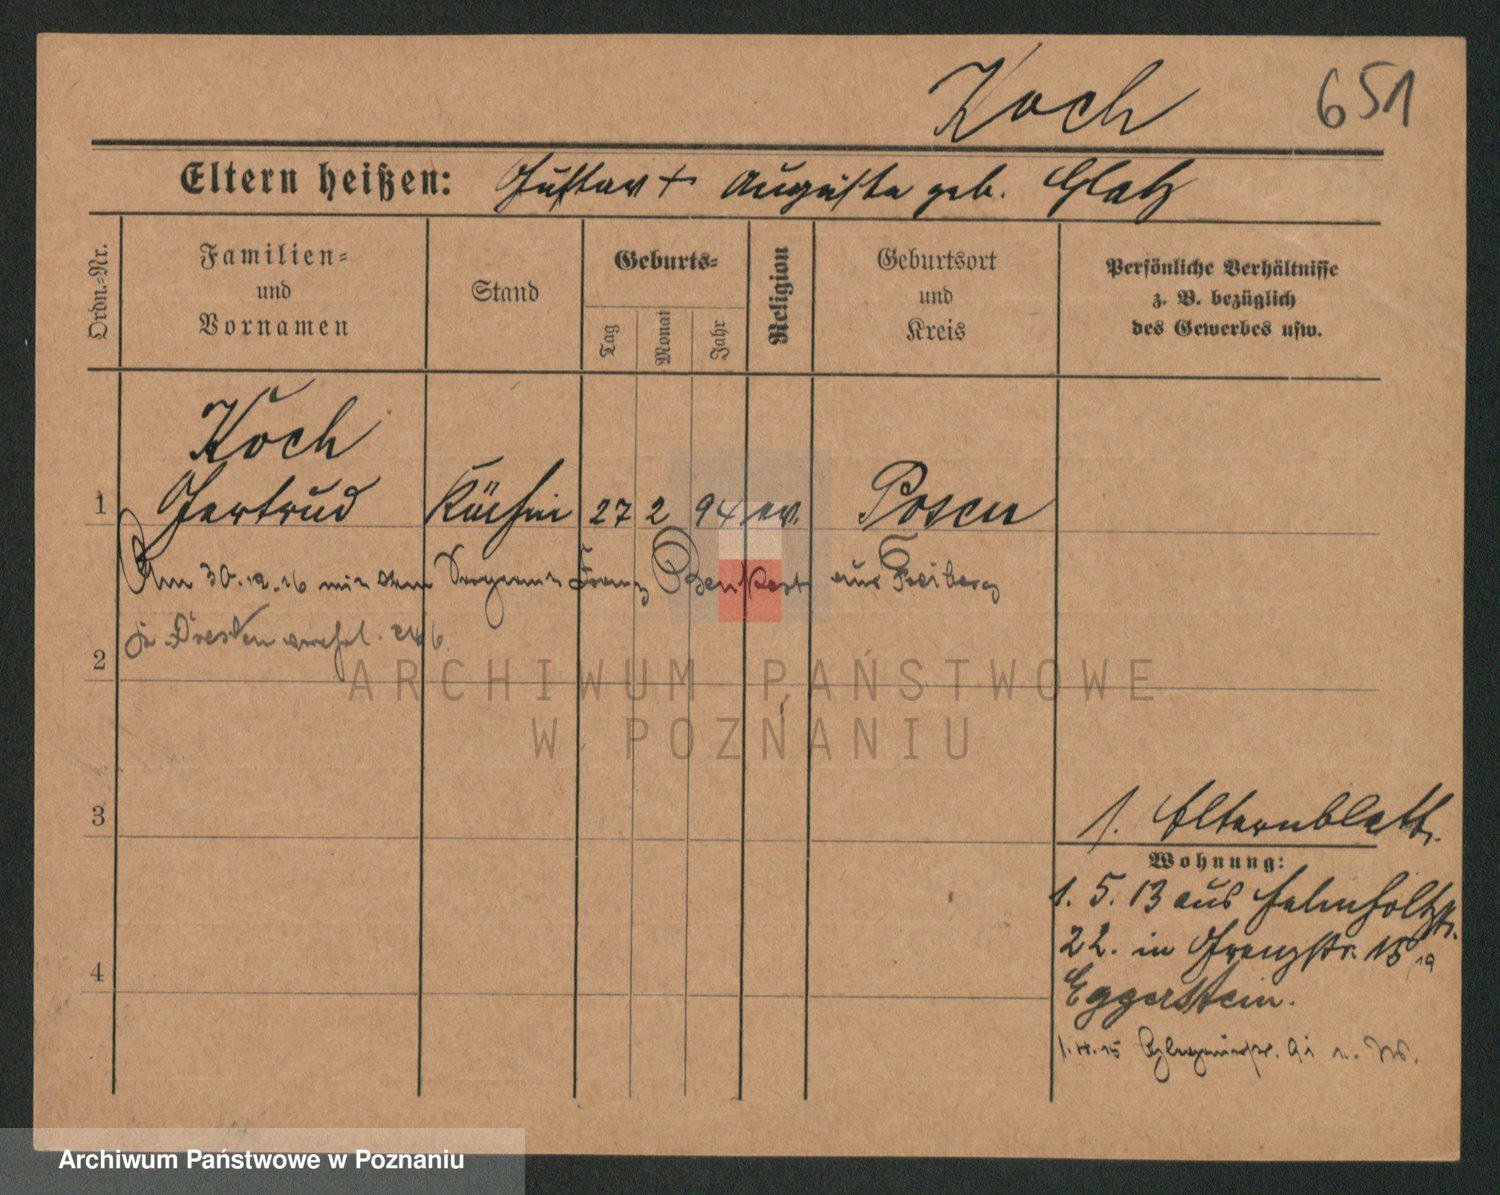 Koch 651
Eltern heißen: Gustav + Auguste geb. Glatz
Ordn.-Nr.
Familien-
und
Vornamen
Stand
Geburts-
Tag
Monat
Jahr
Religion
Geburtsort
und
Kreis
Persönliche Verhältnisse
z. B. bezüglich
des Gewerbes usw.
Koch
1 Gertrud Köchin 27 2 94 ev. Posen
Am 30.12.16 mit dem Sergeant Franz aus Freiberg
in Dresden verehel.
2
ARCHIWUM PAŃSTWOWE
W POZNANIU
3
s. Elternblatt.
Wohnung:
1. 5. 13 aus Helmholtzstr.
22. in Grenzstr. 15
4
Eggerstein.
Archiwum Państwowe w Poznaniu